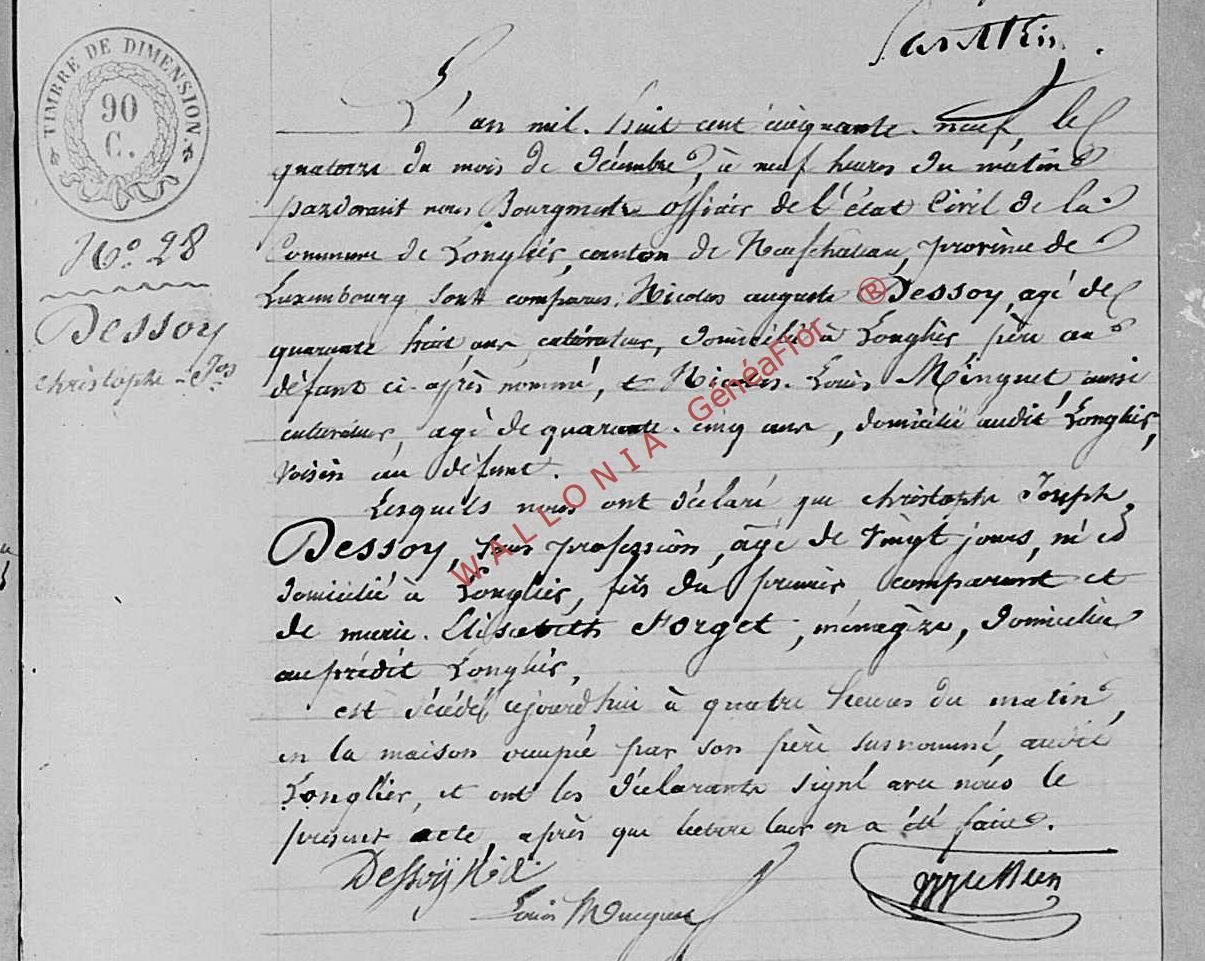 TIMBRE DE DIMENSION
90
C.
L'an mil-huit cent cinquante-neuf, le
quatorze du mois de décembre, à neuf heures du matin
pardevant nous Bourgmestre officier de l'état Civil de la
Commune de Longlier, canton de Neufchateau, province de
Luxembourg sont comparus, Nicolas auguste ® Dessoy, agé de
quarante huit ans, cultivateur, domicilié à Longlier père au
défunt ci-après nommé, et Nicolas-Louis Minguet, aussi
cultivateur, agé de quarante-cinq ans, domicilié audit Longlier,
voisin au défunt.
Lesquels nous ont déclaré que christophe Joseph
Dessoy, sans profession, âgé de vingt jours, né et
domicilié à Longlier, fils du premier comparant et
de marie-Elisabeth Forget, ménagère, domiciliée
au prédit Longlier,
est décédé ajourd'hui à quatre heures du matin,
en la maison occupée par son père surnommé, audit
Longlier, et ont les déclarants signé avec nous le
présent acte, après que lecture leur en a été faite.
Dessoy
Louis
No. 28
Dessoy
christophe-Jos
WALLONIA GénéaFlor